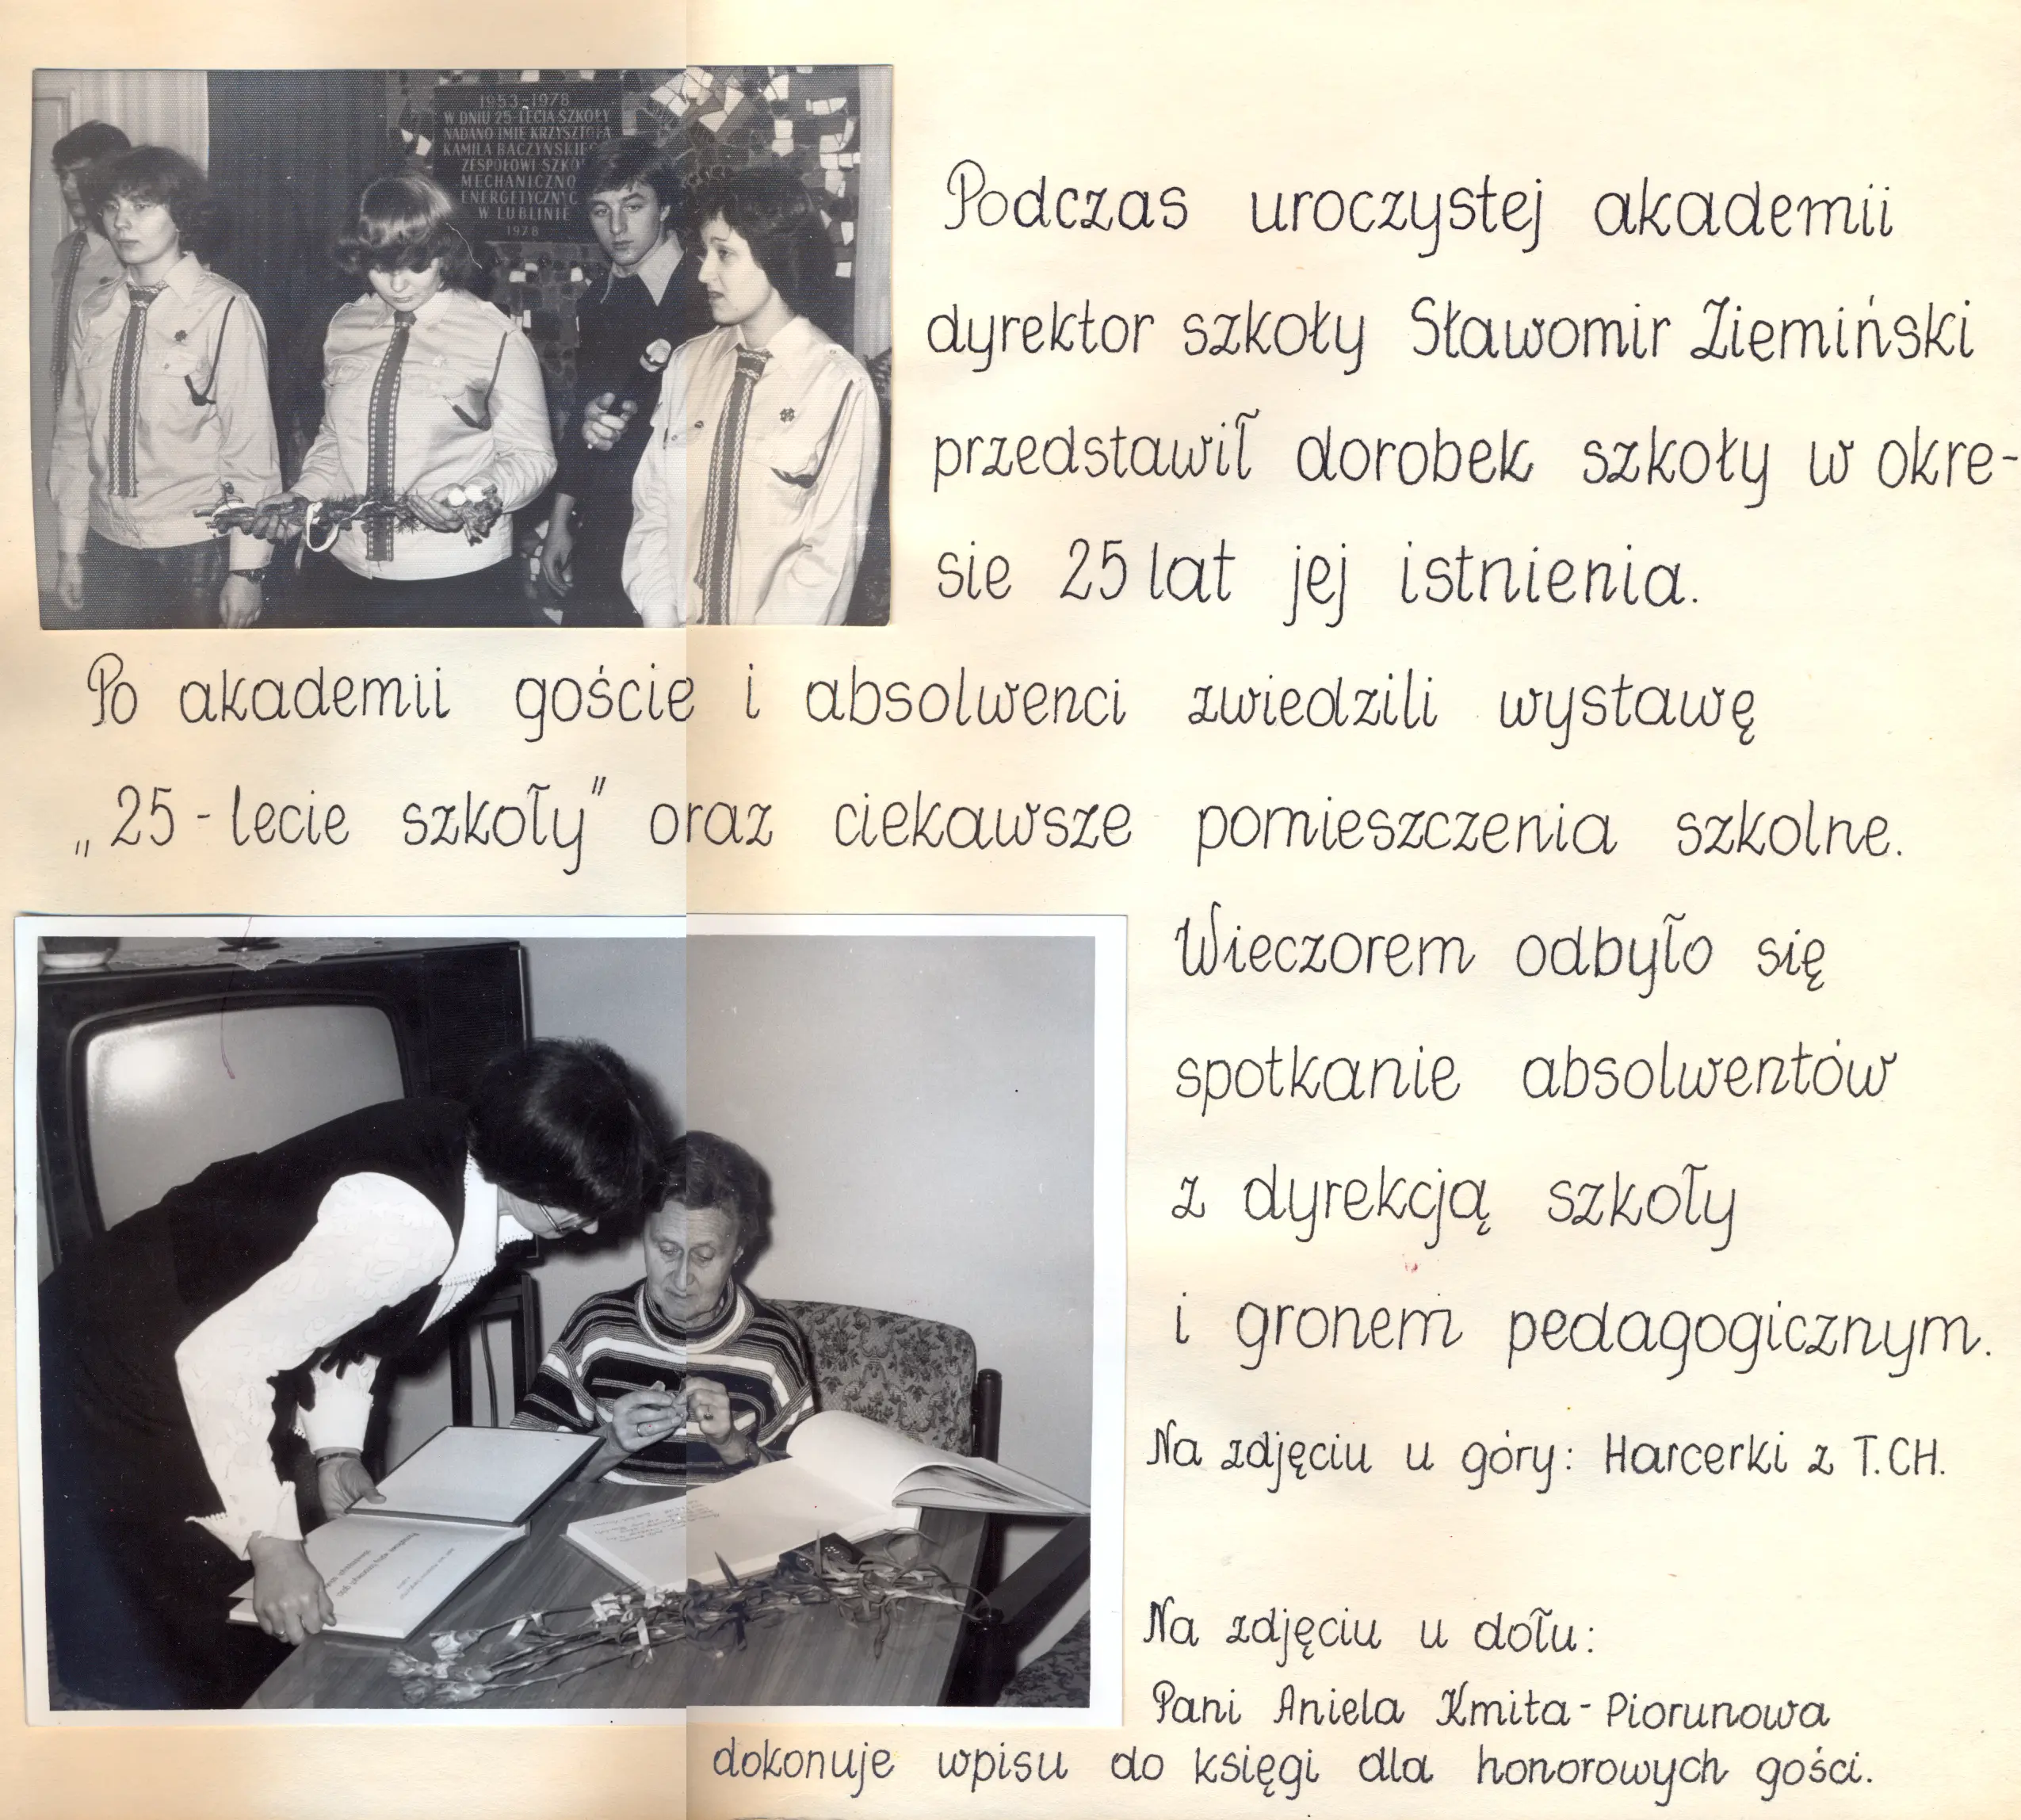 1953-1978
W DNIU 25-LECIA SZKOŁY
NADANO IMIĘ KRZYSZTOFA
KAMILA
ZESPOŁOWI
MECHANICZNO
W LUBLINIE
1978
Podczas uroczystej akademii
dyrektor szkoły Sławomir Ziemiński
przedstawił dorobek szkoły w okre-
sie 25 lat jej istnienia.
Po akademii goście i absolwenci zwiedzili wystawę
„25-lecie szkoły" oraz ciekawsze pomieszczenia szkolne.
Wieczorem odbyło się
spotkanie absolwentów
z dyrekcją szkoły
i gronem pedagogicznym.
Na zdjęciu u góry: Harcerki z T.CH.
Na zdjęciu u dołu:
Pani Aniela Kmita-Piorunowa
dokonuje wpisu do księgi dla honorowych gości.